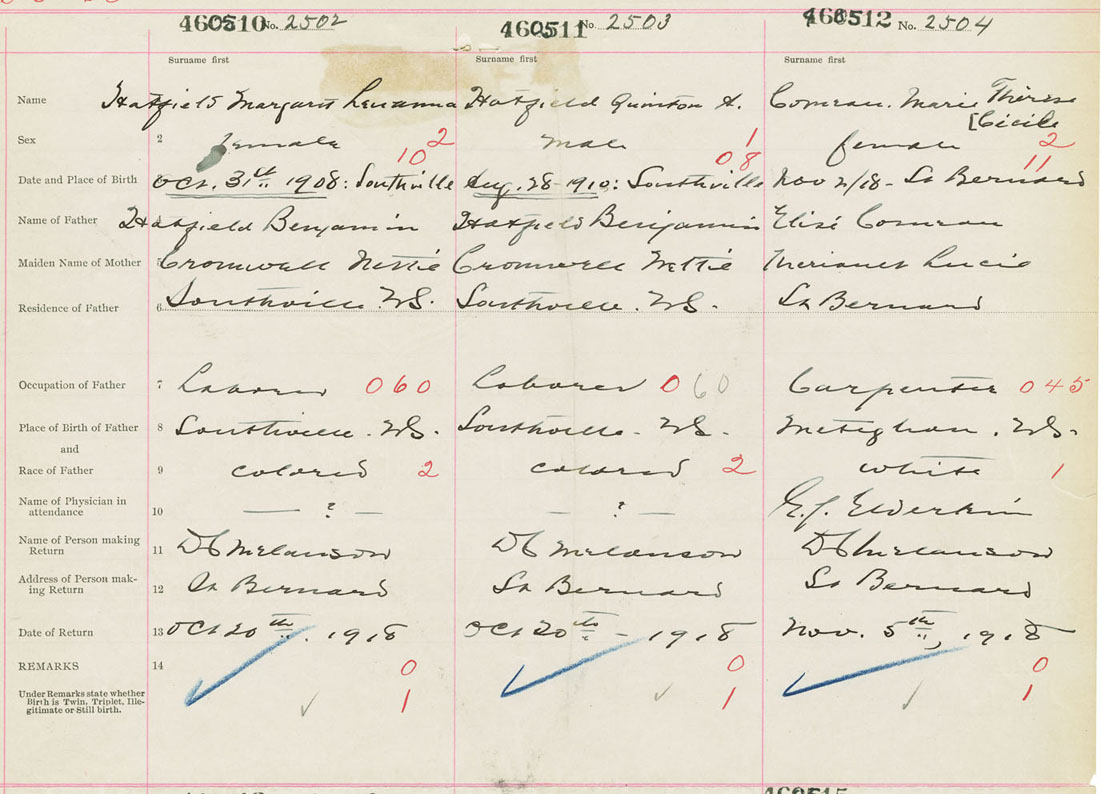 460510 No. 2502 460511 No. 2503 460512 No. 2504
Surname first Surname first Surname first
Name Hatfield Margaret Hatfield Quinton A. Comeau. Marie Thérèse
[Cicile
Sex 2 female 2 male 1 female 2
10 08 11
Date and Place of Birth Oct. 31st 1908: Southville Aug. 28-1910: Southville Nov 2/18- St Bernard
Name of Father Hatfield Benjamin Hatfield Benjamin Elisé Comeau
Maiden Name of Mother 5 Cromwell Nettie Cromwell Nettie Lucie
Residence of Father 6 Southville. NS. Southville. NS. St Bernard
Occupation of Father 7 Laborer 060 Laborer 060 Carpenter 045
Place of Birth of Father 8 Southville. NS. Southville- NS. Meteghan. NS.
and
Race of Father 9 colored 2 colored 2 white 1
Name of Physician in
attendance 10 — ? — — ? — Elderkin
Name of Person making
Return 11 Melanson Melanson Melanson
Address of Person mak-
ing Return 12 St Bernard St Bernard St Bernard
Date of Return 13 Oct 20th. 1918 Oct 20th - 1918 Nov. 5th, 1918
REMARKS 14 0 0 0
Under Remarks state whether
Birth is Twin, Triplet, Ille-
gitimate or Still birth. 1 1 1